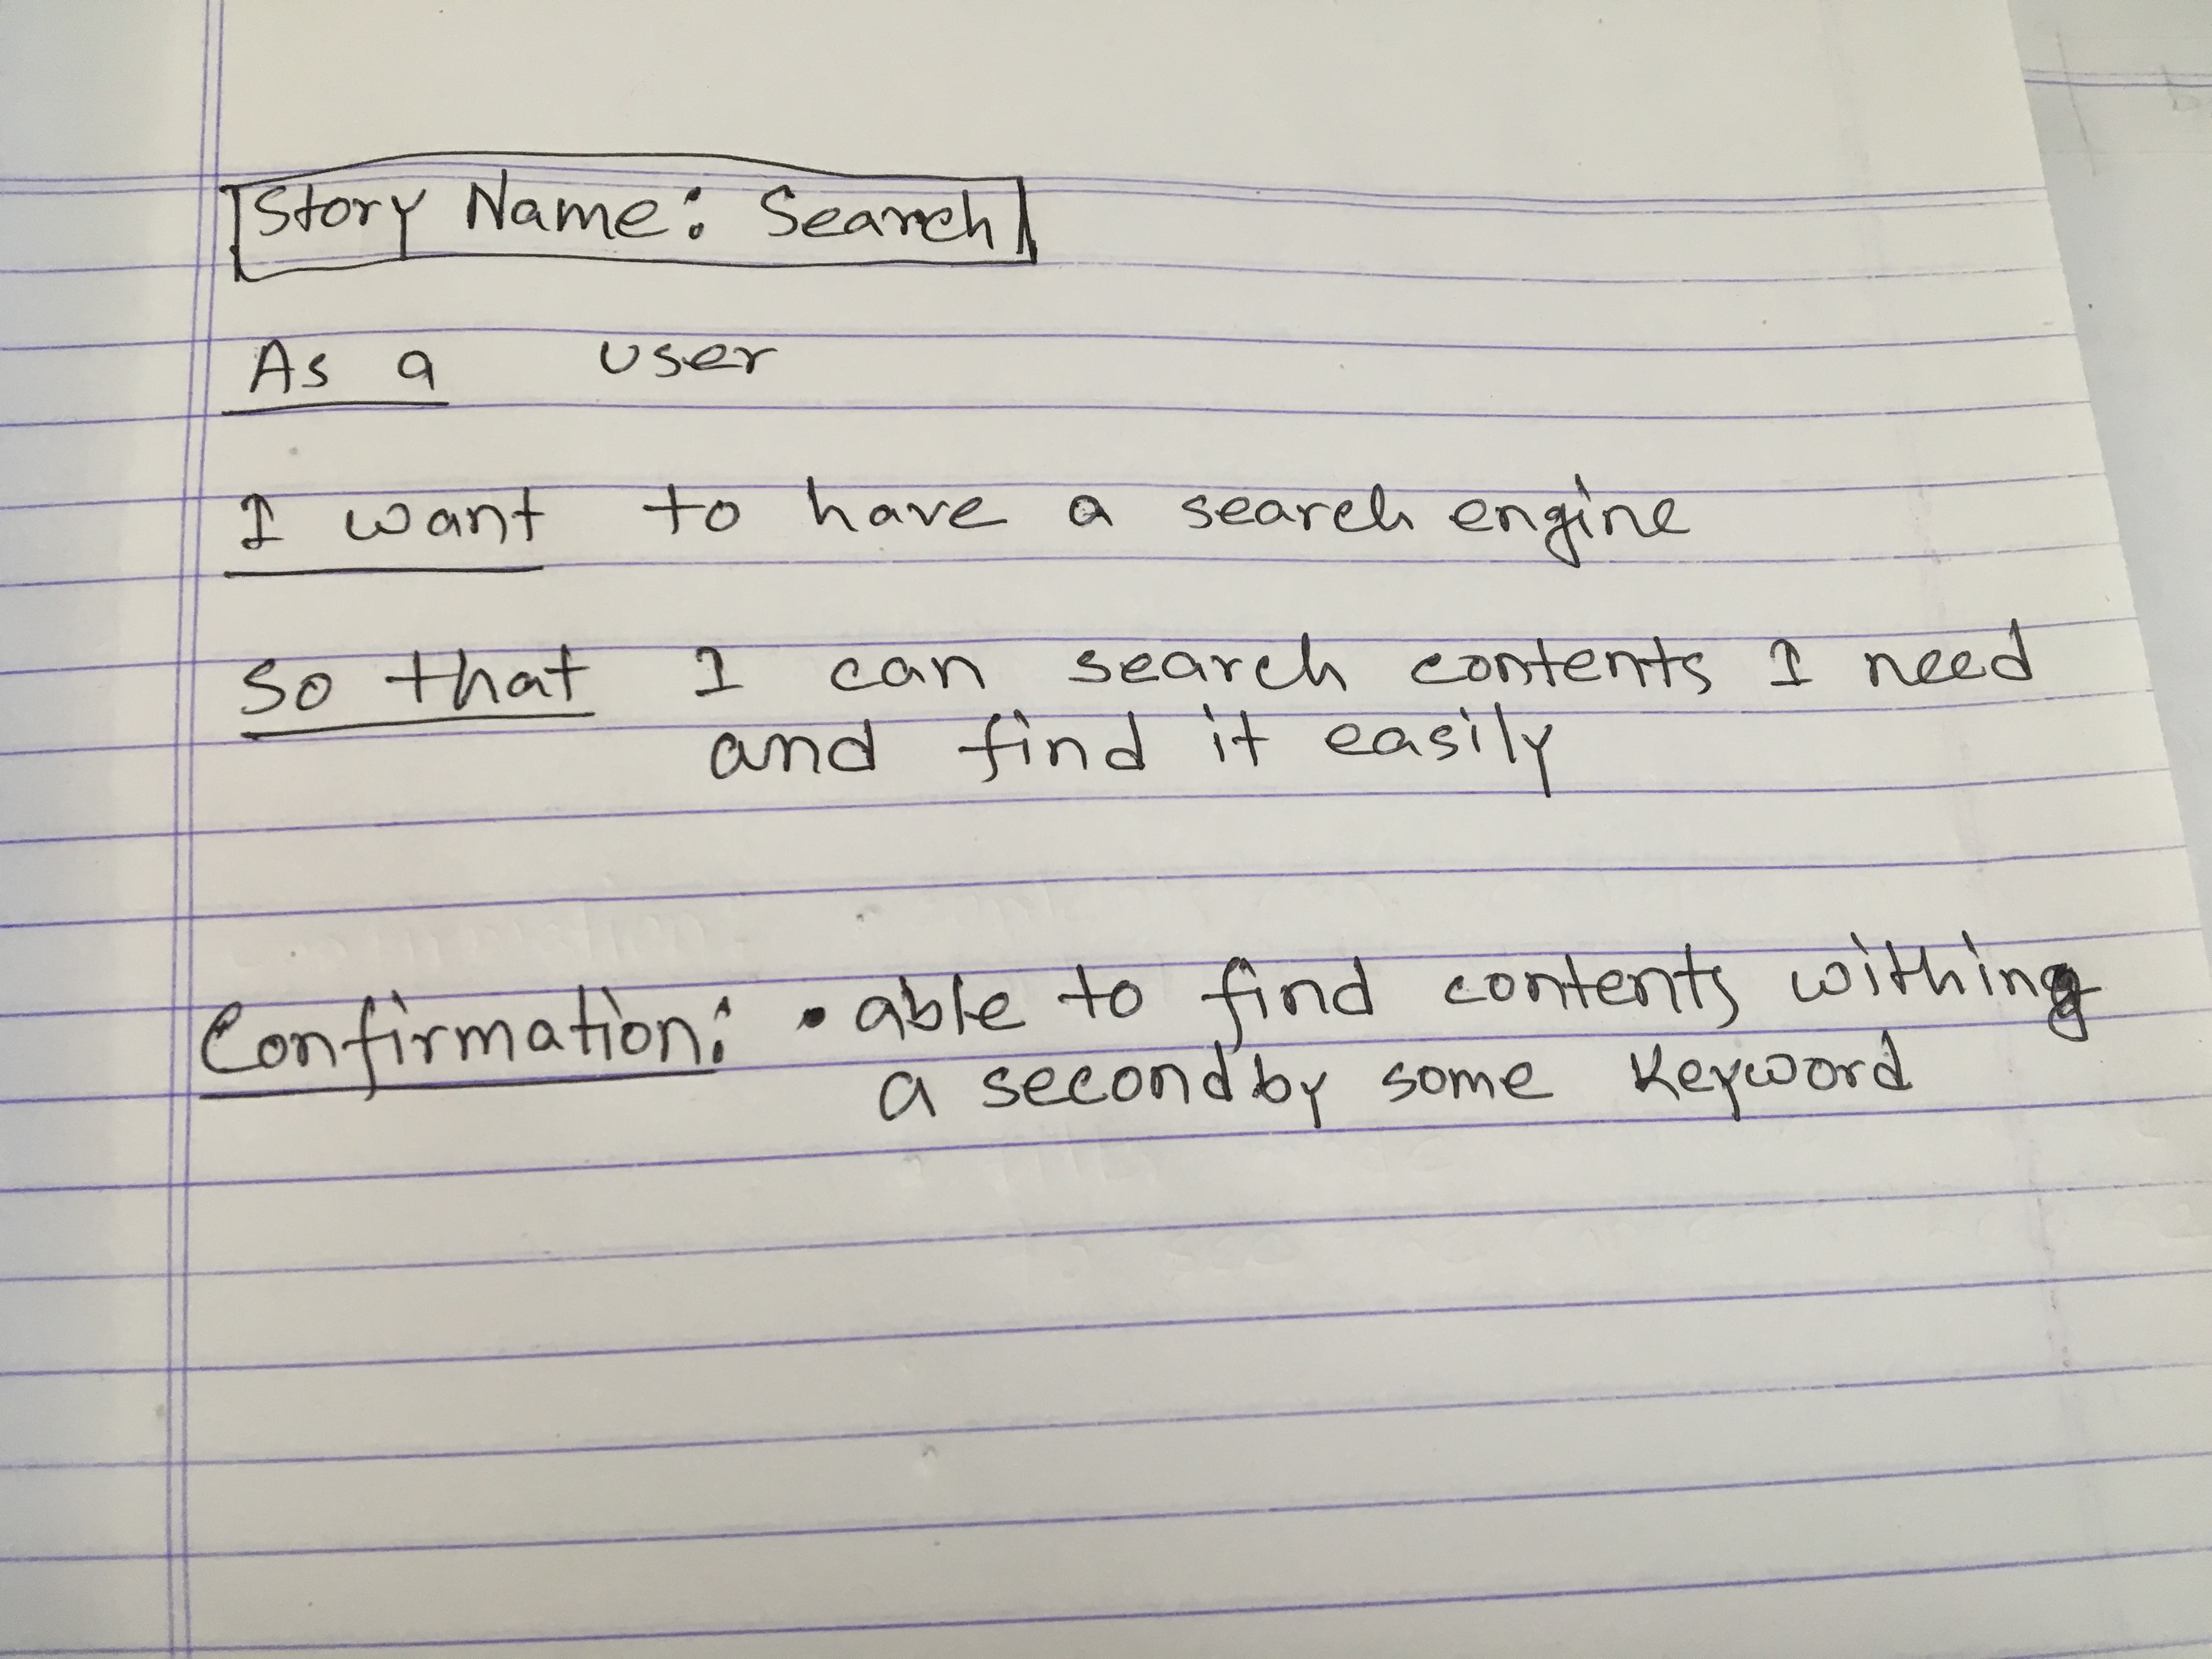 Story Name: Search
As a user
I want to have a search engine
so that I can search contents I need
and find it easily
Confirmation: • able to find contents withing
a second by some keyword